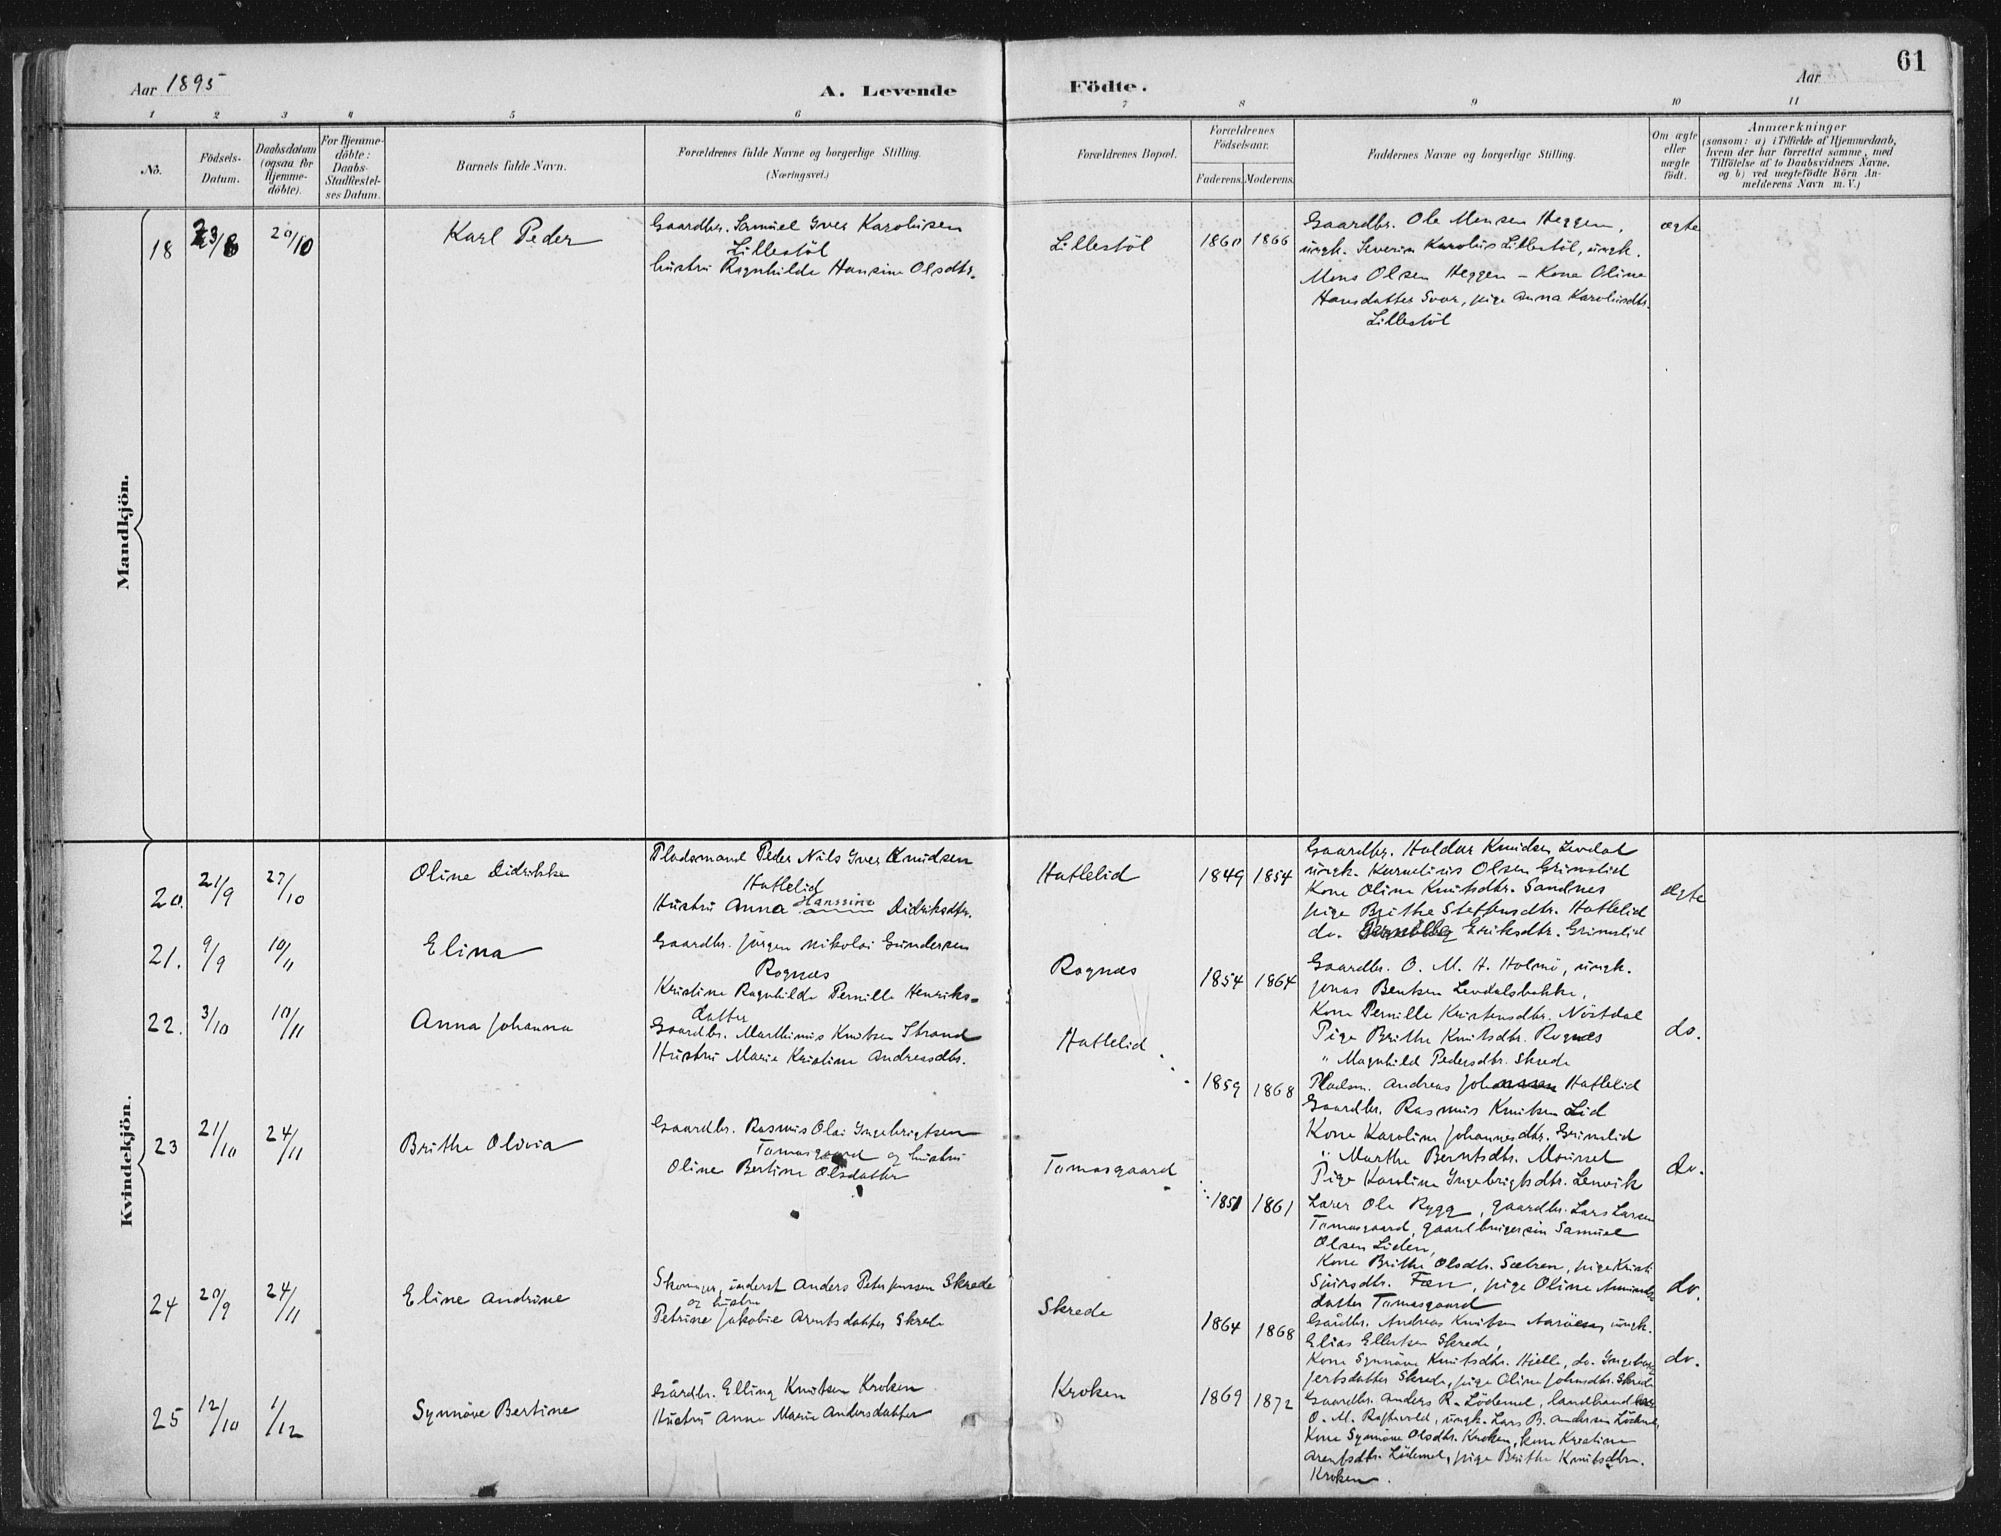 Aar 1895
A. Levende
Födte.
Aar
61
1 2 3 4 5 6 7 8 9 10 11
No.
Födsels-
Datum.
Daabsdatum
(ogsaa for
Hjemme-
döbte).
For Hjemme-
döbte:
Daabs-
Stadfæstel-
ses Datum.
Barnets fulde Navn.
Forældrenes fulde Navne og borgerlige Stilling.
(Næringsvei.)
Forældrenes Bopæl.
Forældrenes
Födselsaar.
Faderens.
Moderens.
Faddernes Navne og borgerlige Stilling.
Om ægte
eller
uægte
födt.
Anmærkninger
(saasom: a) i Tilfælde af Hjemmedaab,
hvem der har forrettet samme, med
Tilföielse af to Daabsvidners Navne,
og b) ved uægtefödte Börn An-
melderens Navn m. V.)
Mandkjön.
18
23/8
20/10
Karl Peder
Gaardbr. Samuel Iver Karolusen
Lillestöl
hustru Ragnhilde Hansine Olsdtr.
Lillestöl
1860
1866
Gaardbr. Ole Monsen Heggen,
ungk. Severin Karolus Lillestöl, ungk.
Mons Olsen Heggen – Kone Oline
Hansdatter Svor, pige Anna Karolusdtr.
Lillestöl
ægte
Kvindekjön.
20.
21/9
27/10
Oline Didrikke
Pladsmand Peder Nils Iver Knudsen
Hatlelid
Hustru Anna Hanssine Didriksdtr.
Hatlelid
1849
1854
Gaardbr. Haldor Knudsen Levdal
ungk. Kornelius Olsen Grimslid
Kone Oline Knutsdtr. Sandnes
pige Brithe Steffensdtr. Hatlelid
do. Eriksdtr. Grimslid
ægte
21.
9/9
10/11
Elina
Gaardbr. Jörgen Nikolai Gundersen
Rognæs
Kristine Ragnhilde Pernille Henriks-
datter
Rognæs
1854
1864
Gaardbr. O. M. H. Holmö, ungk.
Jonas Bentsen Levdalsbakke,
Kone Pernille Kristensdtr. Nöstdal
Pige Brithe Knutsdtr. Rognes
" Magnhild Pedersdtr. Skrede
do.
22.
3/10
10/11
Anna Johanna
Gaardbr. Marthinus Knutsen Strand
Hustru Marie Kristine Andreasdtr.
Hatlelid
1859
1868
Pladsm. Andreas Johannsen Hatlelid
Gaardbr. Rasmus Knutsen Lid
Kone Karoline Johannesdtr. Grimslid
" Marthe Berntsdtr. Mourset
Pige Karoline Ingebrigtsdtr. Lenvik
do.
23
21/10
24/11
Brithe Olivia
Gaardbr. Rasmus Olai Ingebrigtsen
Tomasgaard og hustru
Oline Bertine Olsdatter
Tomasgaard
1851
1861
Lærer Ole Rygg, gaardbr. Lars Larsen
Tomasgaard, gaardbrugersön Samuel
Olsen Liden,
Kone Brithe Olsdtr. Sætren, pige Kristi
Sjursdtr. Fæn, pige Oline Amunds-
datter Tomasgaard
do.
24
20/9
24/11
Eline Andrine
inderst Anders Peter Jenssen Skrede
og hustru
Petrine Jakobie Arentsdatter Skrede
Skrede
1864
1868
Gaardbr. Andreas Knutsen Aaröen, ungk.
Elias Ellertsen Skrede,
Kone Synnöve Knutsdtr. Hjelle, do. Ingeborg
Jertsdatter Skrede, pige Oline Johnsdtr. Skrede
do.
25
12/10
1/12
Synnöve Bertine
Gårdbr. Elling Knutsen Kroken
Hustru Anne Marie Andersdatter
Kroken
1869
1872
Gaardbr. Anders R. Lödemel, landhandler
O. M. Raftevold, ungk. Lars B. Andersen Lödemel,
Kone Synnöve Olsdtr. Kroken, kone Kristine
Arentsdtr. Lödemel, pige Brithe Knutsdtr.
Kroken.